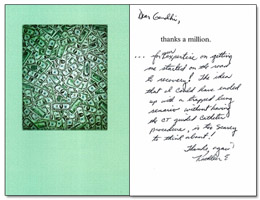 Dear Gandhi,
thanks a million.
... for expertise on getting
me started on the road
to recovery! The idea
that I could have ended
up with a trapped lung
scenario without having
the CT guided catheter
procedure, is too scary
to think about!
Thanks again!